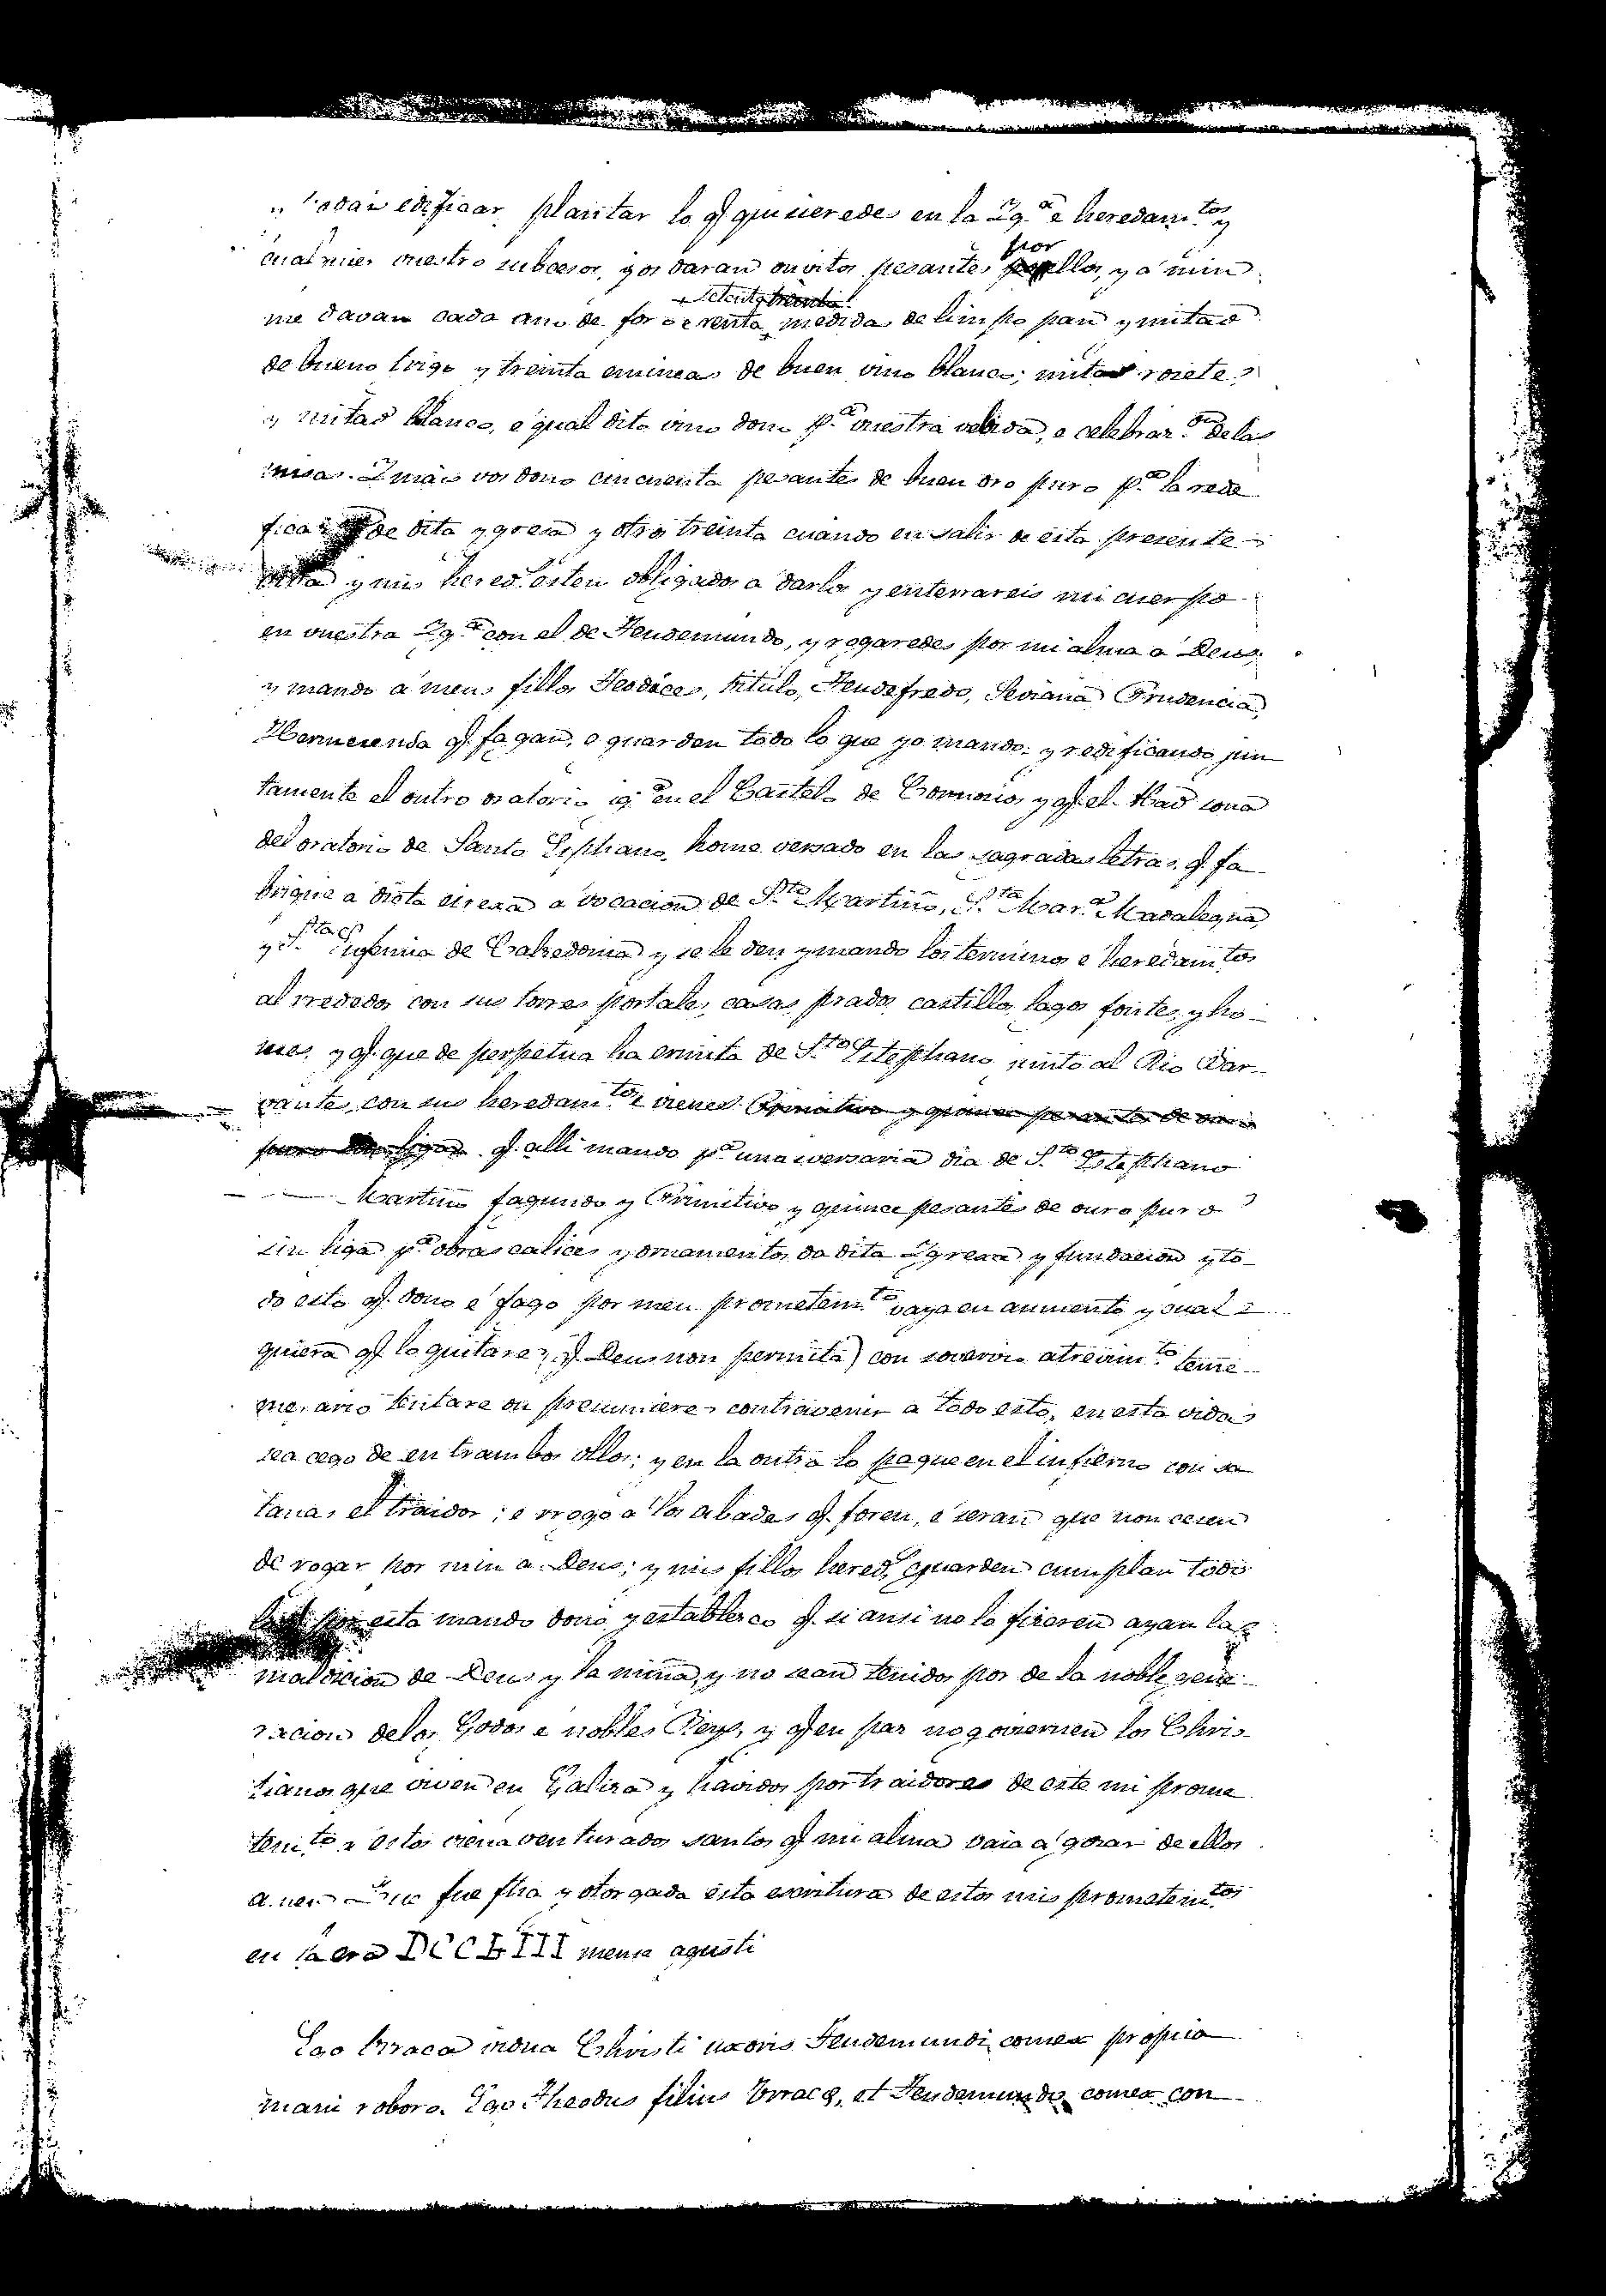 edificar, plantar lo q.e quisieredes en la Ig.a e heredam.tos y
vuestro subcesor, y os daran ouvitos pesantes por ellos, y a min
me davan cada ano de foro e renta setenta medidas de limpo pan y mitad
de bueno trigo y treinta emineas de buen vino blanco; mitad roiete,
y mitad blanco, e qual dito vino dono p.a vuestra vebida, e celebrar.on de las
misas. I mais vos dono cincuenta pesantes de buen oro puro p.a la rede
de dita ygresa y otros treinta cuando en salir de esta presente
vida y mis hered.s esten obligados a darlos y enterrareis mi cuerpo
en vuestra Ig.a con el de Teudemundo, y rogaredes por mi alma a Deus,
y mando a meus fillos Teodices, Titulo, Teudefredo, Seviana Prudencia,
Hermesenda q.e fagan, e guarden todo lo que yo mando; y redificando jun
tamente el outro oratorio q.e en el Castelo de y q.e el
del oratorio de Santo Estphano, home versado en las sagradas letras, q.e fa
brique a dicta eirexa a vocacion de S.to Martiño, S.ta Mar.a Madalegna,
y S.ta Eufemia de Calsedonia y se le den y mando los terminos e heredam.tos
al rrededor con sus torres portales, casas, prados, castillos, lagos fontes, y ho
mes, y q.e quede perpetua ha ermita de S.to Estephano junto al Rio Bar
vantes, con sus heredam.tos e vienes Primitivo y quince pesantes de ouro
puro sin ligar q.e alli mando p.a una iversaria dia de S.to Estephano
Martino fagundo y Primitivo y quince pesantes de ouro puro
sin liga p.a obras calices y ornamentos da dita Igrexa y fundacion y to
do esto q.e dono e fago por meu prometem.to vaya en aumento y cual
quiera q.e lo quitare, (q.e Deus non permita) con sovervio atrevim.to teme
merario tentare ou presumiere contravenir a todo esto, en esta vida
sea cego de entrambos ollos; y en la outra lo pague en el infierno con sa
tanas el traidor; e rrogo a los Abades q.e foren, e seran que non cesen
de rogar por min a Deus; y mis fillos hered.s guarden cumplan todo
por esta mando dono y establesco q.e si ansi no lo ficeren ayan la
maldicion de Deus y la minna, y no sean tenidos por de la noble gene
racion de los Godos e nobles Reys, y q.e en paz no goviernen los Chris
tianos que viven en Galiza y havidos por traidores de este mi prome
tem.to e estos vienaventurados santos q.e mi alma vaia a gozar de ellos
amen fue fha y otorgada esta escritura de estos mis prometem.tos
en la era DCCLIII mense agusti
Ego Urraca vidua Christi uxoris Teudemundi comes propia
mani roboro. Ego Theodus filius Urracę, et Teudemundo comes con